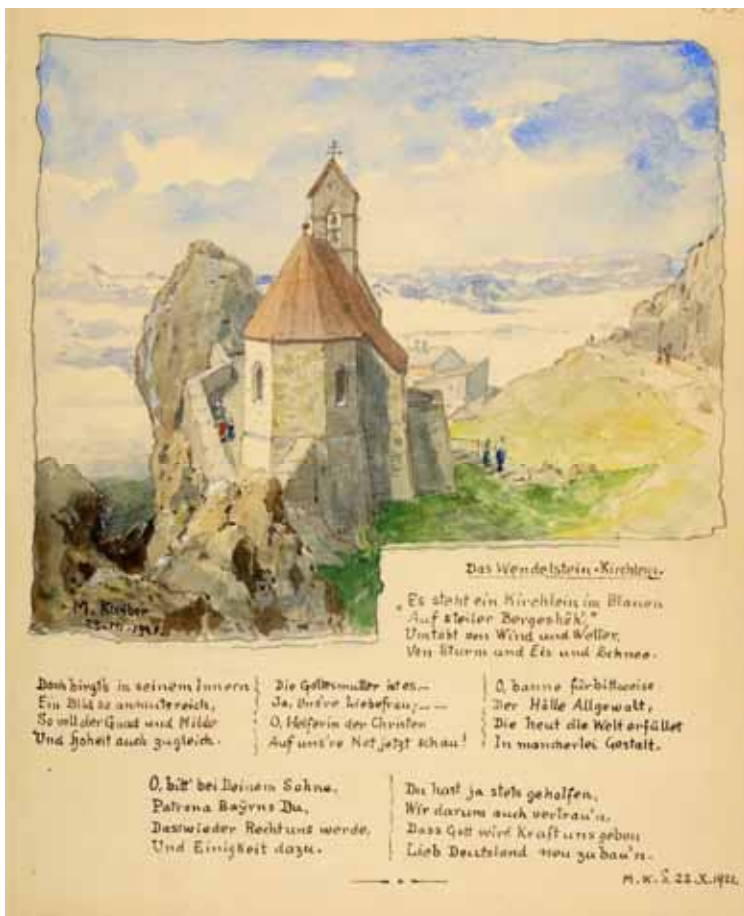 Das Wendelstein-Kirchlein.
„Es steht ein Kirchlein im Blauen
Auf steiler Bergeshöh'"
Umtobt von Wind und Wetter,
Von Sturm und Eis und Schnee.
M. Kleiber
Doch birgt's in seinem Innern
Ein Bild so anmutreich,
So voll der Gnad und Milde
Und Hoheit auch zugleich.
Die Gottesmutter ist es,—
Ja, Uns're Liebefrau;——
O, Helferin der Christen
Auf uns're Not jetzt schau!
O, banne fürbittweise
Der Hölle Allgewalt,
Die heut die Welt erfüllet
In mancherlei Gestalt.
O, bitt' bei Deinem Sohne,
Patrona Baÿrns Du,
Dass wieder Recht uns werde,
Und Einigkeit dazu.
Du hast ja stets geholfen,
Wir darum auch vertrau'n,
Dass Gott wird Kraft uns geben
Lieb Deutsland neu zu bau'n.
M. K. S. 22. X. 1922